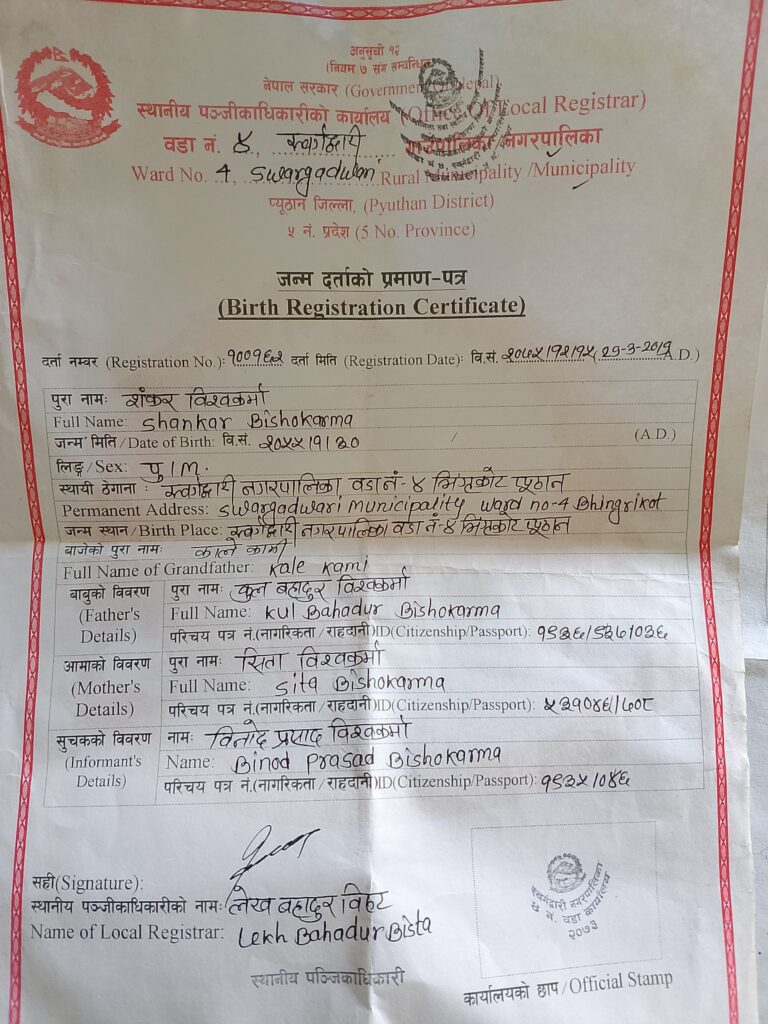 अनुसूची १२
(नियम ७ संग सम्बन्धित)
नेपाल सरकार (Government of Nepal)
स्थानीय पञ्जीकाधिकारीको कार्यालय (Office Of Local Registrar)
वडा नं. ४, स्वर्गद्वारी गाउँपालिका/नगरपालिका
Ward No. 4, Swargadwari Rural Municipality /Municipality
प्यूठान जिल्ला, (Pyuthan District)
५ नं. प्रदेश (5 No. Province)
जन्म दर्ताको प्रमाण-पत्र
(Birth Registration Certificate)
दर्ता नम्बर (Registration No.): दर्ता मिति (Registration Date): वि.सं. २०७५।१२।१५ (29-3-2019 A.D.)
पुरा नामः शंकर विश्वकर्मा
Full Name: Shankar Bishokarma
जन्म मिति/Date of Birth: वि.सं. २०५५।१।३० / (A.D.)
लिङ्ग/Sex: पु/m.
स्थायी ठेगाना : स्वर्गद्वारी नगरपालिका वडा नं- ४ प्यूठान
Permanent Address: Swargadwari municipality ward no-4 Bhingrikot
जन्म स्थान/Birth Place: स्वर्गद्वारी नगरपालिका वडा नं-४ प्यूठान
बाजेको पुरा नामः काले कामी
Full Name of Grandfather: Kale Kami
बाबुको विवरण पुरा नामः कुल बहादुर विश्वकर्मा
(Father's Full Name: Kul Bahadur Bishokarma
Details) परिचय पत्र नं.(नागरिकता / राहदानी)ID(Citizenship/Passport):
आमाको विवरण पुरा नामः सिता विश्वकर्मा
(Mother's Full Name: Sita Bishokarma
Details) परिचय पत्र नं.(नागरिकता / राहदानी)ID(Citizenship/Passport): ५३१०४६/७०८
सुचकको विवरण नामः विनोद प्रसाद विश्वकर्मा
(Informant's Name: Binod Prasad Bishokarma
Details) परिचय पत्र नं.(नागरिकता / राहदानी)ID(Citizenship/Passport):
सही(Signature):
स्थानीय पञ्जीकाधिकारीको नामः लेख बहादुर विष्ट
Name of Local Registrar: Lekh Bahadur Bista
स्थानीय पञ्जिकाधिकारी
स्वर्गद्वारी नगरपालिका
४ नं. वडा कार्यालय
२०७३
कार्यालयको छाप/Official Stamp